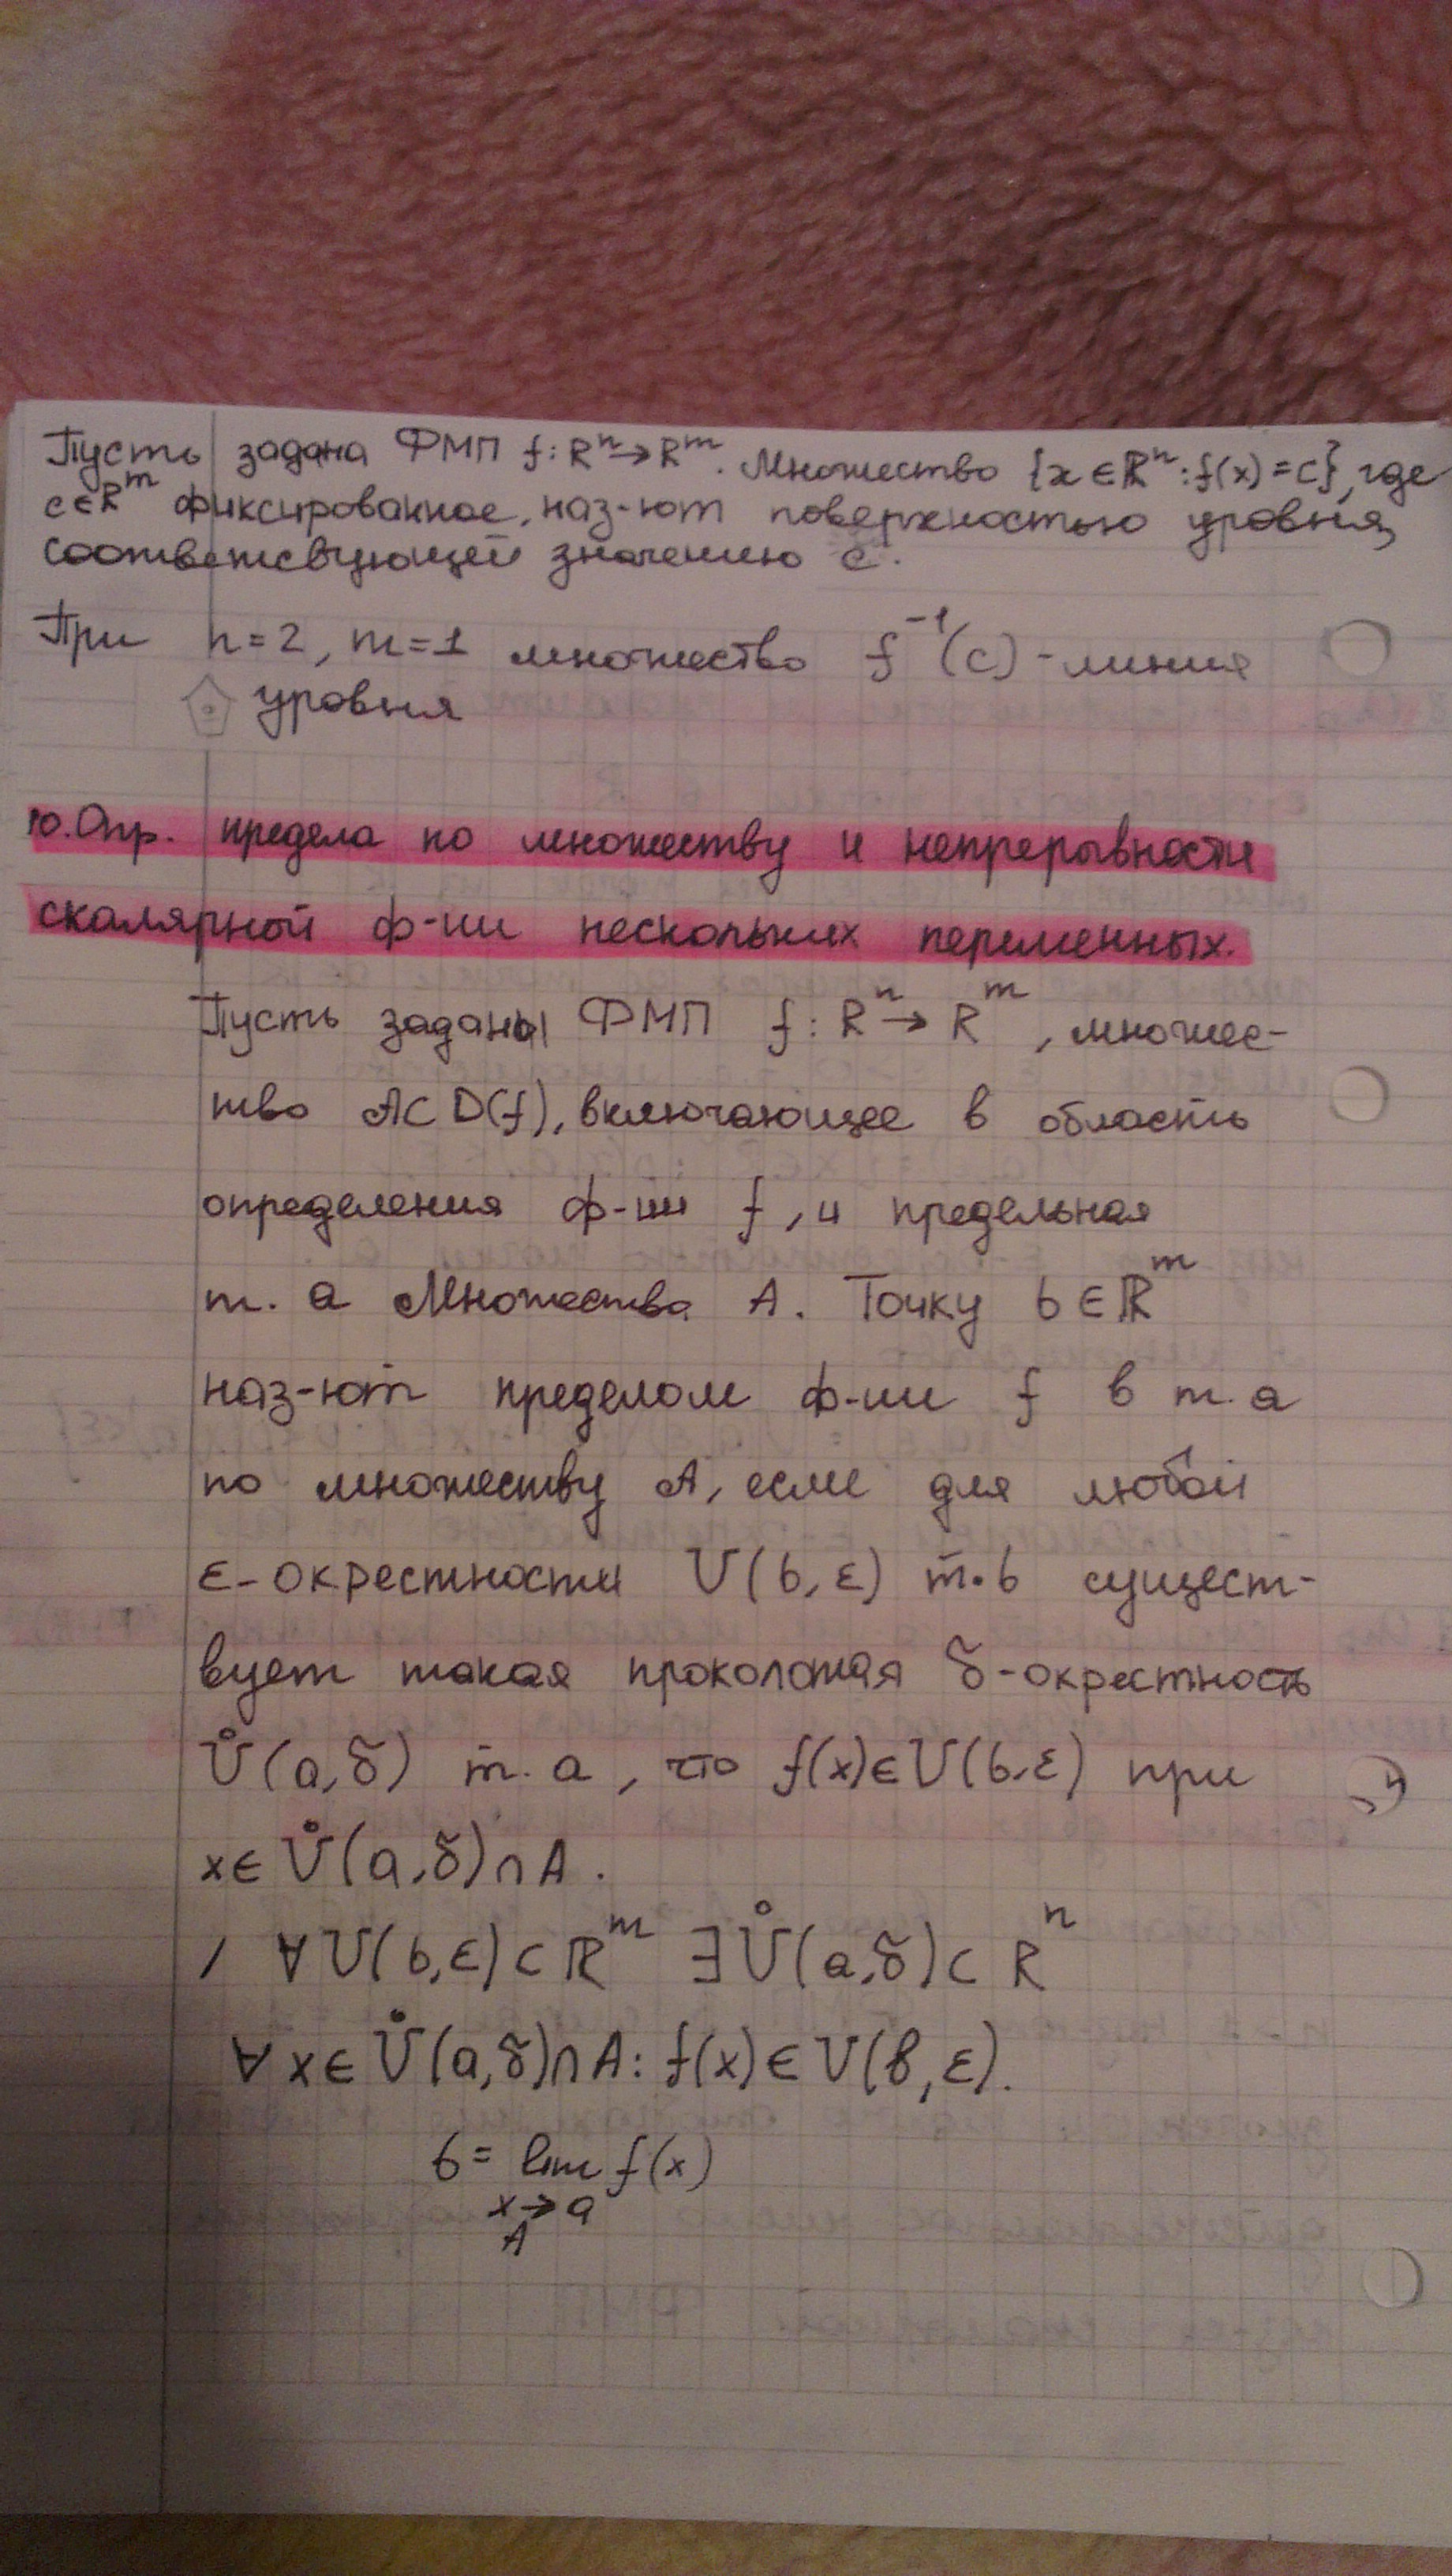 Пусть задана ФМП f: Rⁿ→Rᵐ. Множество {x∈ℝⁿ: f(x)=c}, где
c∈Rᵐ фиксированное, наз-ют поверхностью уровня,
соответсвующей значению c.
При n=2, m=1 множество f⁻¹(c) - линия
уровня
10. Опр. предела по множеству и непрерывности
скалярной ф-ии нескольких переменных.
Пусть заданы ФМП f: Rⁿ→Rᵐ, множес-
тво A⊂D(f), включающее в область
определения ф-ии f, и предельная
т. a Множества A. Точку b∈ℝᵐ
наз-ют пределом ф-ии f в т. a
по множеству A, если для любой
ε-окрестности U(b,ε) т. b сущест-
вует такая проколотая δ-окрестность
Ů(a,δ) т. a, что f(x)∈U(b,ε) при
x∈Ů(a,δ)∩A.
/ ∀U(b,ε)⊂ℝᵐ ∃Ů(a,δ)⊂Rⁿ
∀x∈Ů(a,δ)∩A: f(x)∈U(b,ε).
b = lim f(x)
x→a
A